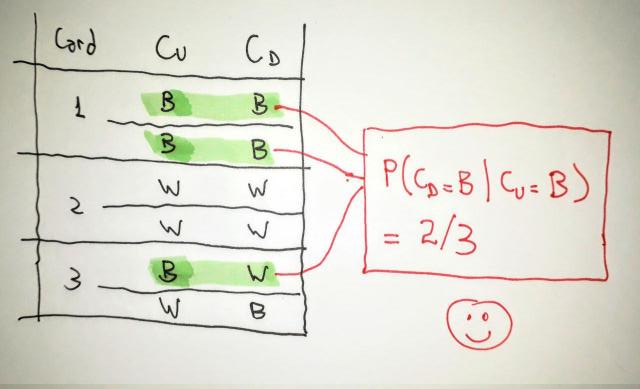 Card C_U C_D
1 B B
B B
2 W W
W W
3 B W
W B
P(C_D=B|C_U=B)
= 2/3